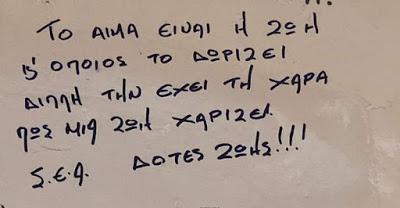 ΤΟ ΑΙΜΑ ΕΙΝΑΙ Η ΖΩΗ
Κ' ΟΠΟΙΟΣ ΤΟ ΔΩΡΙΖΕΙ
ΔΙΠΛΗ ΤΗΝ ΕΧΕΙ ΤΗ ΧΑΡΑ
ΠΩΣ ΜΙΑ ΖΩΗ ΧΑΡΙΖΕΙ.
Σ.Ε.Α. ΔΟΤΕΣ ΖΩΗΣ!!!